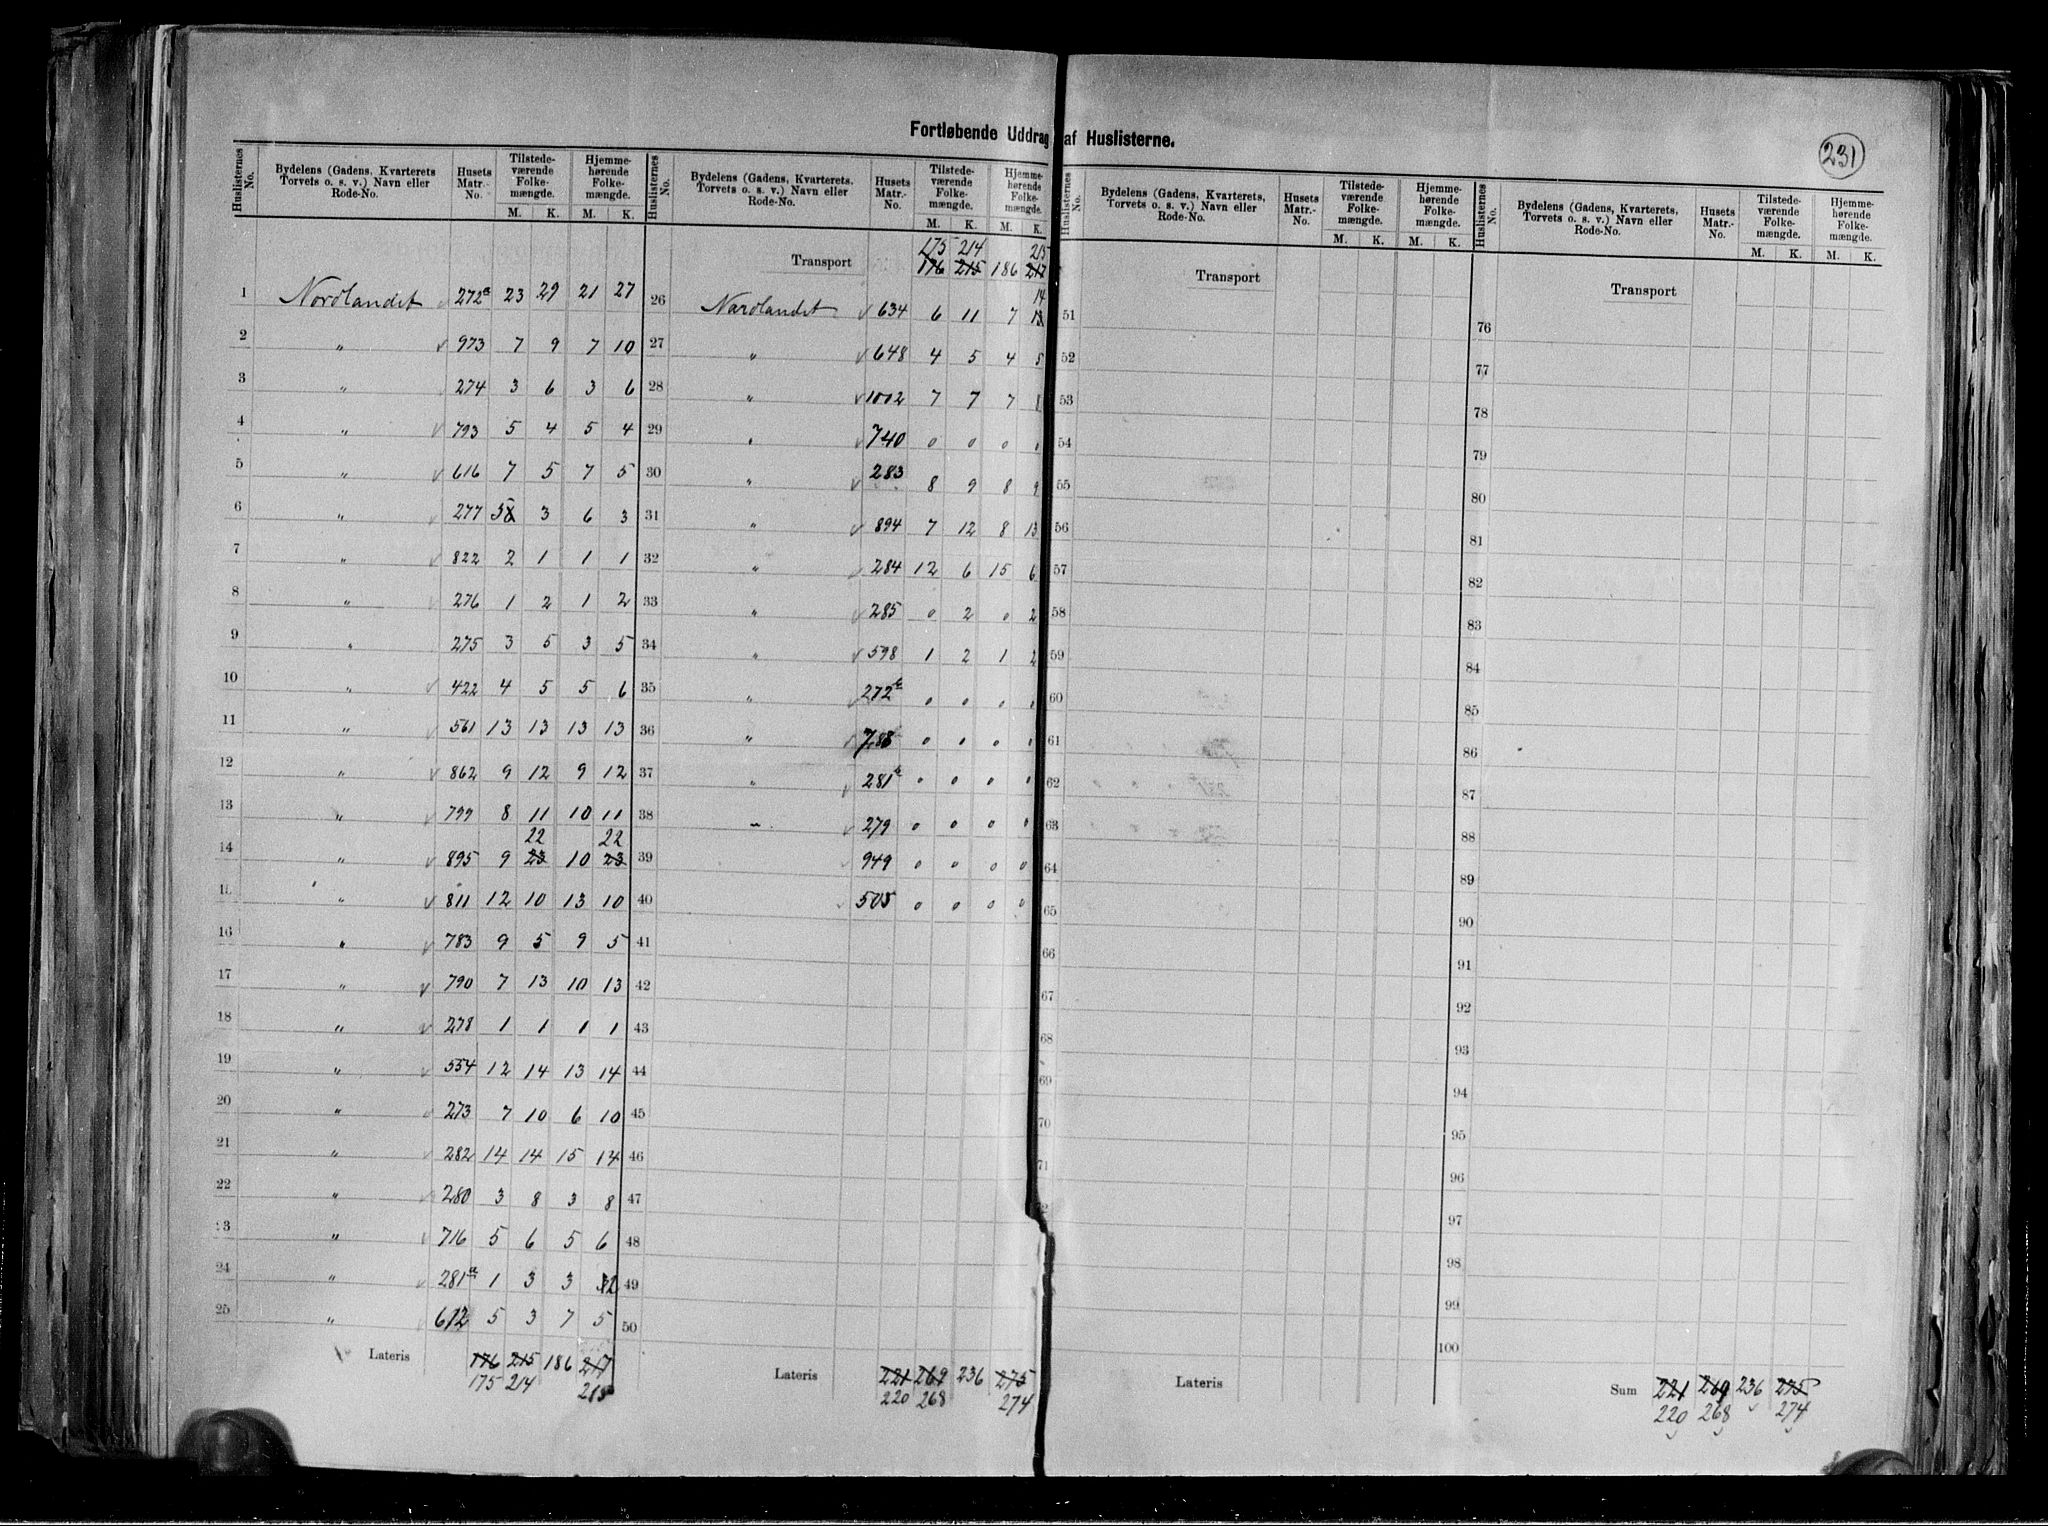 231
Fortløbende Uddrag af Huslisterne.
Huslisternes No. | Bydelens (Gadens, Kvarterets, Torvets o. s. v.) Navn eller Rode-No. | Husets Matr.-No. | Tilstedeværende Folkemængde. M. K. | Hjemmehørende Folkemængde. M. K.
1 Nordlandet 272a 23 29 21 27
2 " 973 7 9 7 10
3 " 274 3 6 3 6
4 " 793 5 4 5 4
5 " 616 7 5 7 5
6 " 277 5 3 6 3
7 " 822 2 1 1 1
8 " 276 1 2 1 2
9 " 275 3 5 3 5
10 " 422 4 5 5 6
11 " 561 13 13 13 13
12 " 862 9 12 9 12
13 " 799 8 11 10 11
22 22
14 " 895 9 23 10 23
15 " 811 12 10 13 10
16 " 783 9 5 9 5
17 " 790 7 13 10 13
18 " 278 1 1 1 1
19 " 554 12 14 13 14
20 " 273 7 10 6 10
21 " 282 14 14 15 14
22 " 280 3 8 3 8
23 " 716 5 6 5 6
24 " 281a 1 3 3 2
25 " 612 5 3 7 5
Lateris 176 215 186 217
175 214 215
Huslisternes No. | Bydelens (Gadens, Kvarterets, Torvets o. s. v.) Navn eller Rode-No. | Husets Matr.-No. | Tilstedeværende Folkemængde. M. K. | Hjemmehørende Folkemængde. M. K.
175 214 215
Transport 176 215 186 217
14
26 Nordlandet 634 6 11 7 13
27 " 648 4 5 4 5
28 " 1002 7 7 7
29 " 740 0 0 0 0
30 " 283 8 9 8 9
31 " 894 7 12 8 13
32 " 284 12 6 15 6
33 " 285 0 2 0 2
34 " 598 1 2 1 2
35 " 272 0 0 0 0
36 " 788 0 0 0 0
37 " 281 0 0 0 0
38 " 279 0 0 0 0
39 949 0 0 0 0
40 505 0 0 0 0
41
42
43
44
45
46
47
48
49
50
Lateris 221 269 236 275
220 268 274
Huslisternes No. | Bydelens (Gadens, Kvarterets, Torvets o. s. v.) Navn eller Rode-No. | Husets Matr.-No. | Tilstedeværende Folkemængde. M. K. | Hjemmehørende Folkemængde. M. K.
Transport
51
52
53
54
55
56
57
58
59
60
61
62
63
64
65
66
67
68
69
70
71
72
Lateris
Huslisternes No. | Bydelens (Gadens, Kvarterets, Torvets o. s. v.) Navn eller Rode-No. | Husets Matr.-No. | Tilstedeværende Folkemængde. M. K. | Hjemmehørende Folkemængde. M. K.
Transport
76
77
78
79
80
81
82
83
84
85
86
87
88
89
90
91
92
93
94
95
96
97
98
99
100
Sum 221 269 236 275
220 268 274